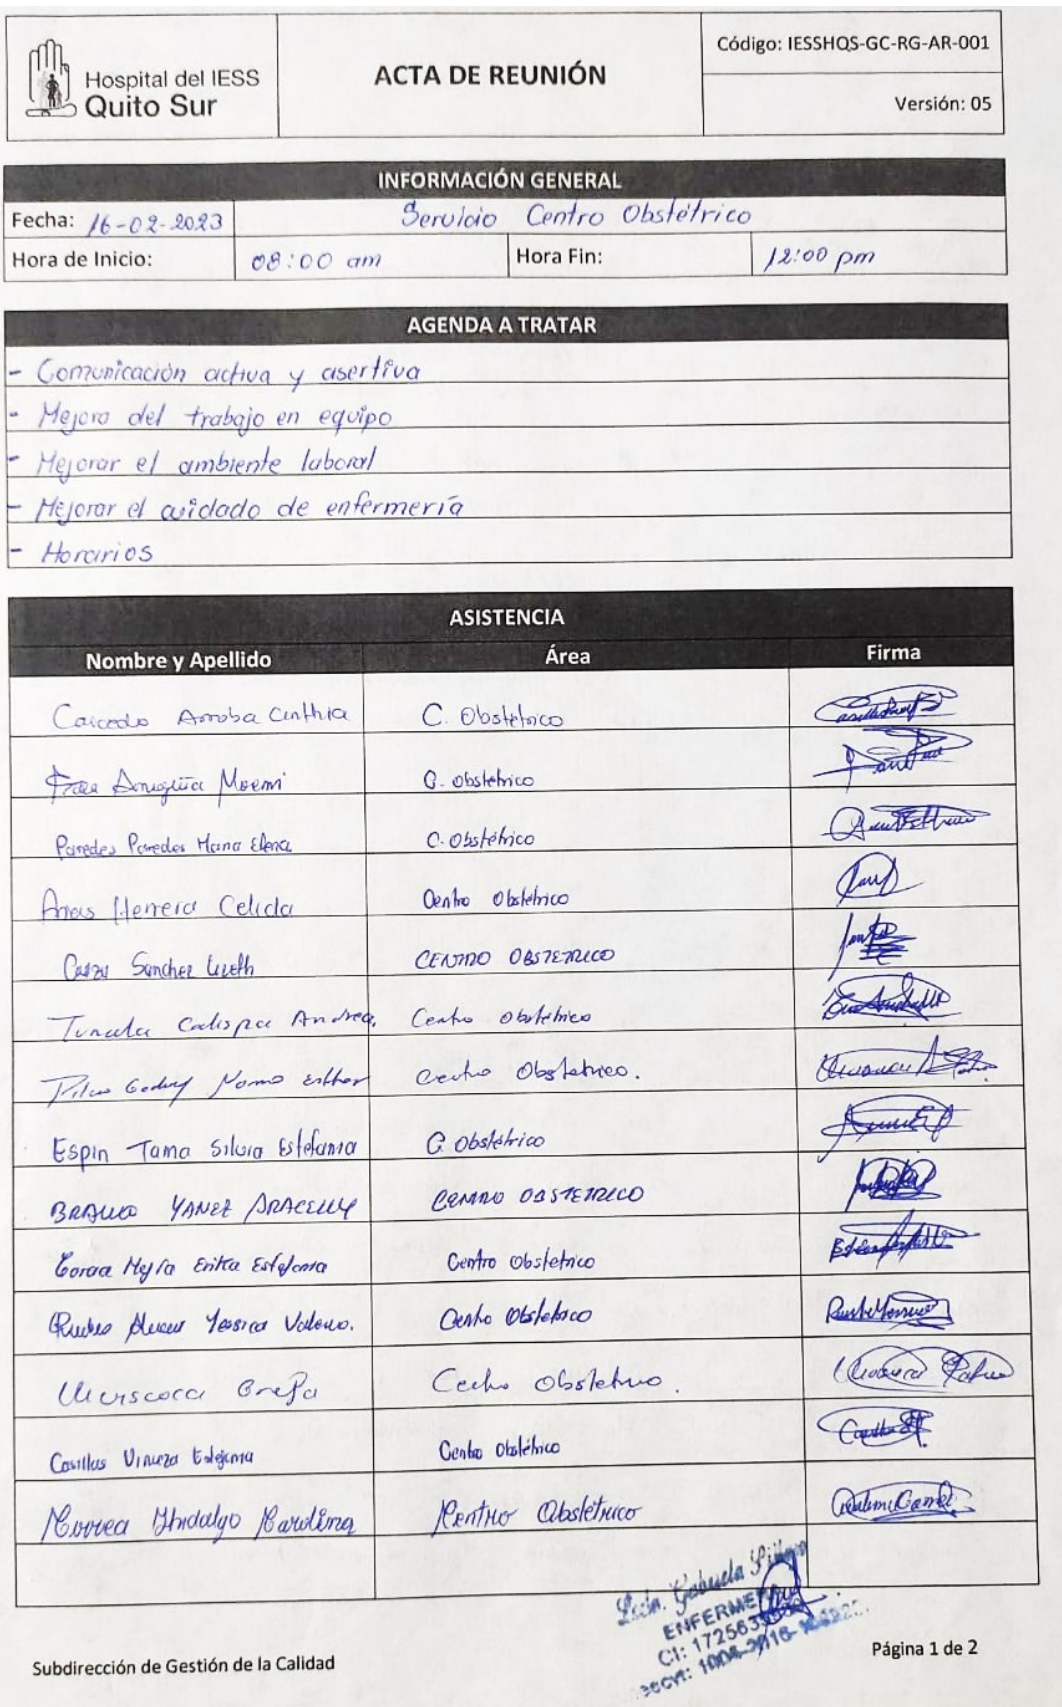 Hospital del IESS
Quito Sur
ACTA DE REUNIÓN
Código: IESSHQS-GC-RG-AR-001
Versión: 05
INFORMACIÓN GENERAL
Fecha: 16-02-2023 Servicio Centro Obstétrico
Hora de Inicio: 08:00 am Hora Fin: 12:00 pm
AGENDA A TRATAR
- Comunicación activa y asertiva
- Mejora del trabajo en equipo
- Mejorar el ambiente laboral
- Mejorar el cuidado de enfermería
- Horarios
ASISTENCIA
Nombre y Apellido Área Firma
Caicedo Arroba Cinthia C. Obstétrico
Noemi C. Obstétrico
Paredes Paredes Maria Elena C. Obstétrico
Arias Herrera Celida Centro Obstétrico
Sanchez Lizeth CENTRO OBSTETRICO
Andrea Centro Obstétrico
Esther Centro Obstetrico.
Espin Tama Silvia Estefania C. Obstétrico
BRAVO YANEZ ARACELLY CENTRO OBSTETRICO
Mejia Erika Estefania Centro Obstetrico
Yessica Centro Obstetrico
Centro Obstetrico.
Casillas Vinueza Estefania Centro Obstétrico
Correa Hidalgo Carolina Centro Obstétrico
Lcda. Gabriela
ENFERMERA
Subdirección de Gestión de la Calidad
Página 1 de 2